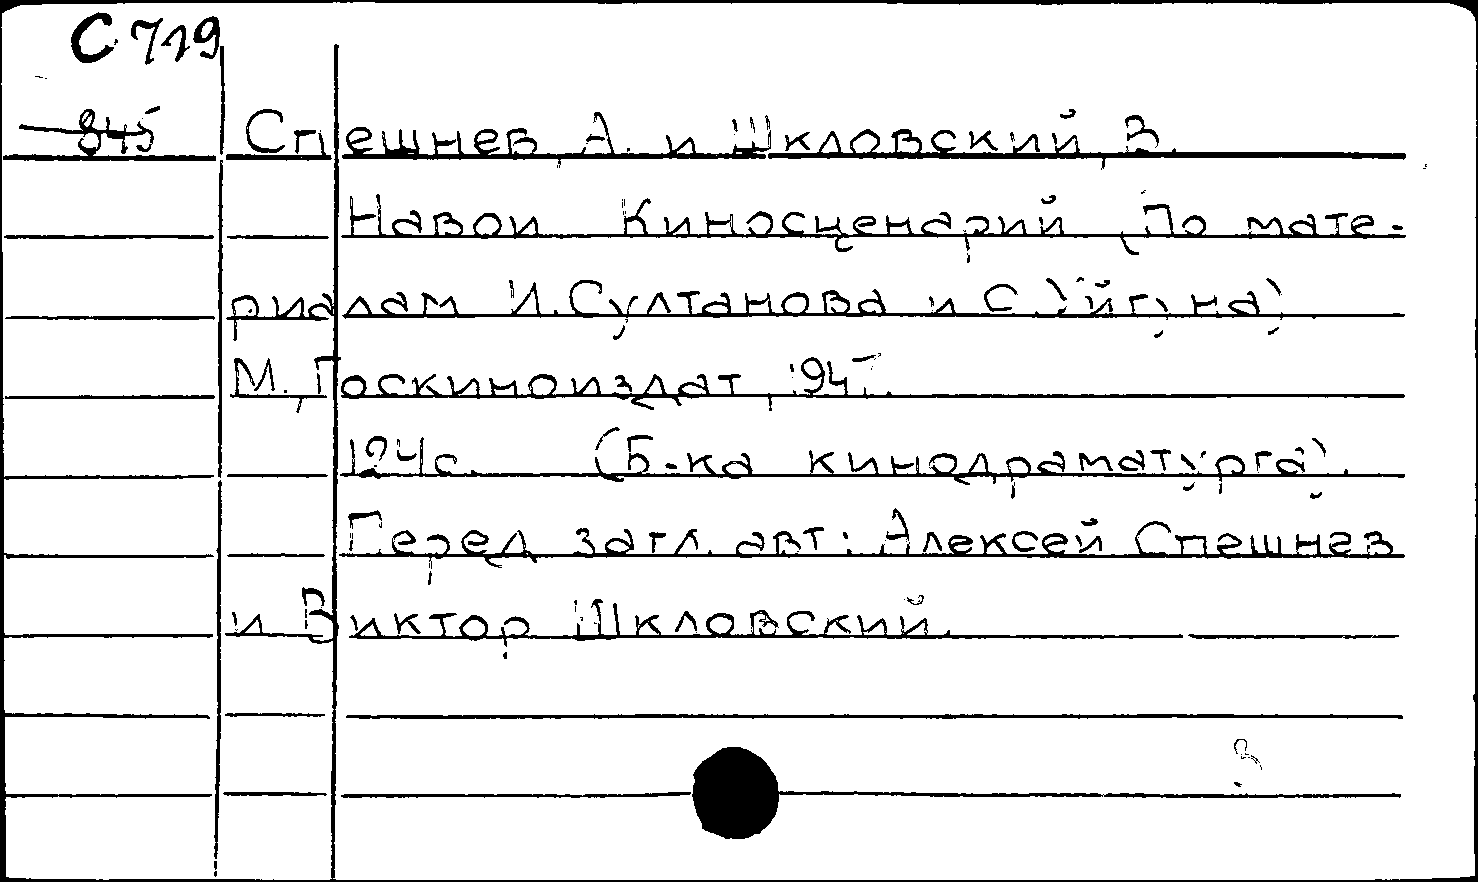 С 719
845 Спешнев, А. и Шкловский, В.
Навои Киносценарий (По мате-
риалам И. Султанова и С Уйгуна)
М., Госкиноиздат, 1947.
124с. (Б-ка кинодраматурга).
Перед загл. авт: Алексей Спешнев
и Виктор Шкловский.